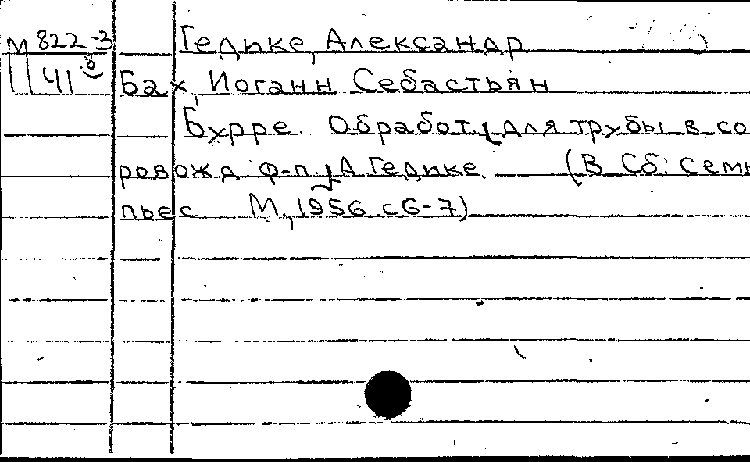 М 822-3 Гедике, Александр
41 Бах, Иоганн Себастьян
Бурре. Обработ. для трубы в со
ровожд ф-п. А. Гедике. (В сб: семь
пьес М., 1956 с 6-7)